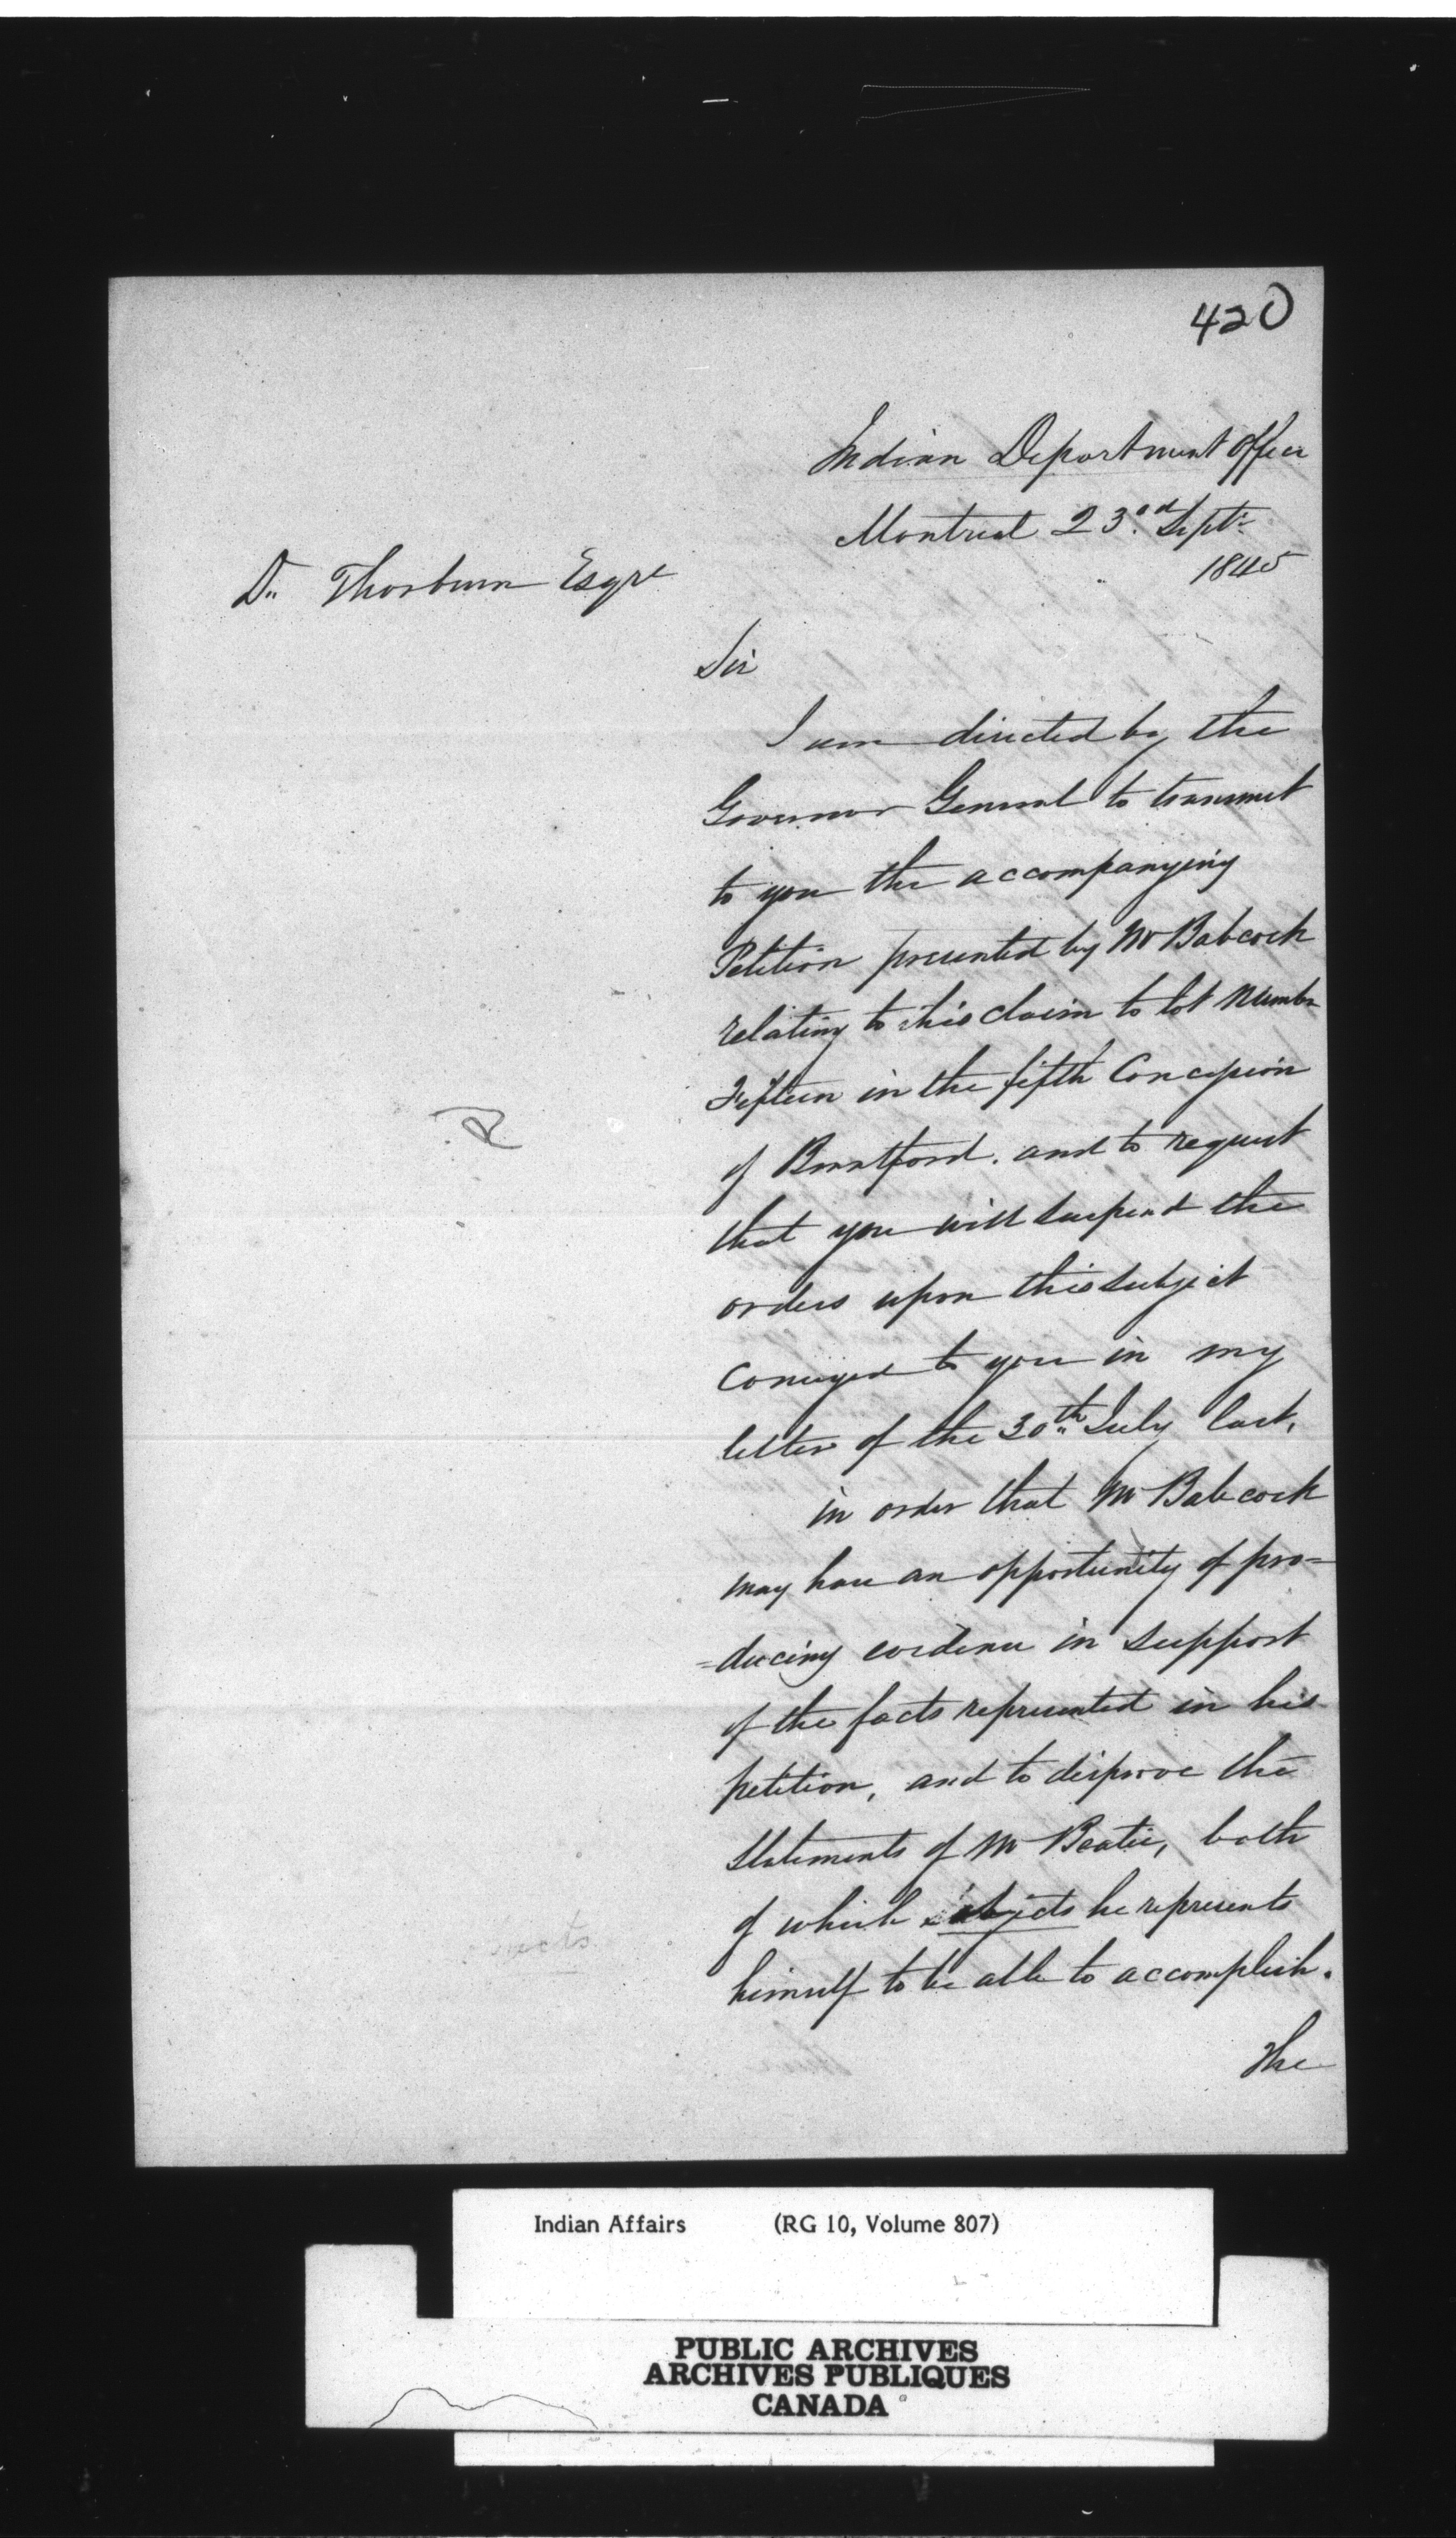 420
Indian Department Office
Montreal 23rd Septr
1845
D. Thorburn Esqre
Sir
I am directed by the
Governor General to transmit
to you the accompanying
Petition presented by Mr Babcock
relating to his claim to lot Number
Fifteen in the fifth Concession
of Brantford. and to request
that you will suspend the
orders upon this subject
conveyed to you in my
letter of the 30th July last,
in order that Mr Babcock
may have an opportunity of pro=
=ducing evidence in support
of the facts represented in his
petition, and to disprove the
Statements of Mr Beatie, both
of which objects he represents
himself to be able to accomplish.
The
Indian Affairs (RG 10, Volume 807)
PUBLIC ARCHIVES
ARCHIVES PUBLIQUES
CANADA